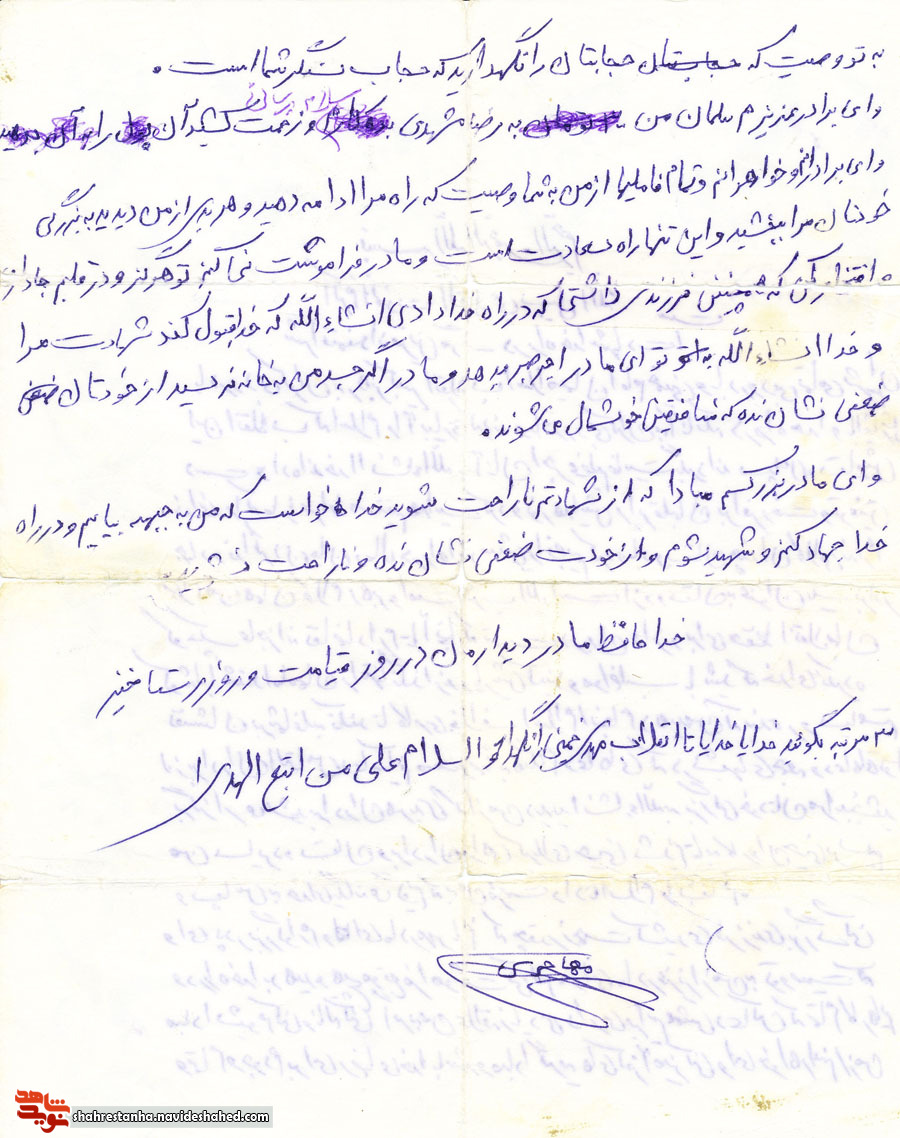 به تو وصیت که حجابتان را نگهدارید که حجاب سنگر شما است.
وای برادر عزیزم سلمان من به رضا مرشدی سلام برسان و زحمت کشید آن را
وای برادرانم و خواهرانم و تمام فامیلها از من به شما وصیت که راه مرا ادامه دهید و هر بدی از من دیدید به بزرگی
خودتان مرا ببخشید و این تنها راه سعادت است و مادر فراموشت نمی کنم تو هرگز و در قلبم جا داری
افتخار کن که همچنین فرزندی داشتی که در راه خدا دادی انشاء الله که خدا قبول کند شهادت مرا
و خدا انشاء الله به تو ای مادر اجر صبر میدهد و مادر اگر جسد من به خانه نرسید از خودتان
ضعفی نشان نده که منافقین خوشحال می شوند.
وای مادر بزرگم مبادا که از شهادتم ناراحت شوید خدا خواست که من به جبهه بیایم و در راه
خدا جهاد کنم و شهید شوم و از خودت ضعفی نشان نده و ناراحت نشوید
خدا حافظ مادر دیدارمان در روز قیامت و روز رستاخیز
۳ مرتبه بگوئید خدایا خدایا تا انقلاب مهدی خمینی را نگهدار والسلام علی من اتبع الهدی
مهاجری
نوید شاهد
shahrestanha.navideshahed.com